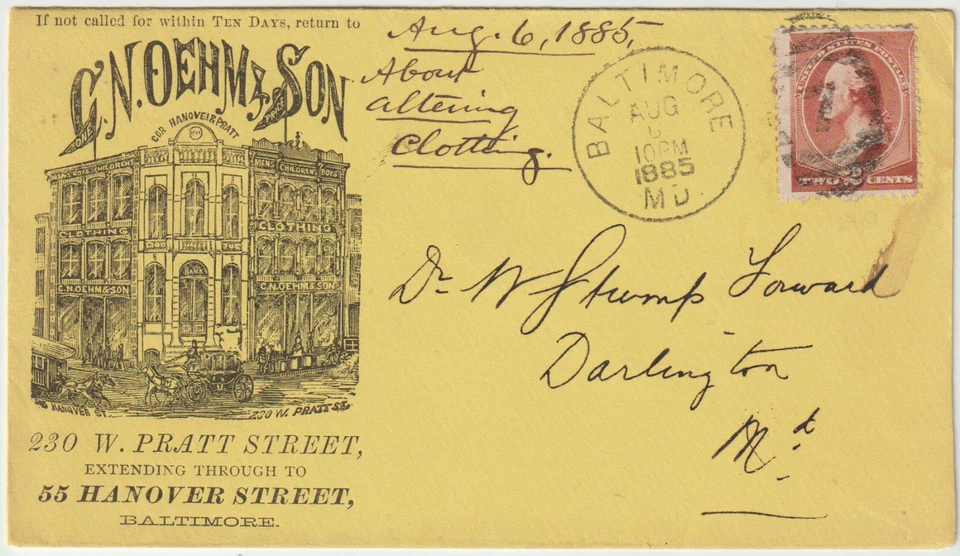 If not called for within TEN DAYS, return to
C. N. OEHM & SON
COR HANOVER & PRATT
MENS BOYS CHILDRENS
MENS CHILDRENS BOYS
CLOTHING
CLOTHING
BANK
C.N.OEHM & SON
C.N.OEHM & SON
HANOVER ST.
230 W. PRATT ST.
230 W. PRATT STREET,
EXTENDING THROUGH TO
55 HANOVER STREET,
BALTIMORE.
Aug. 6, 1885,
About
altering
Clothing.
BALTIMORE
AUG
6
10PM
1885
MD
UNITED STATES POSTAGE
TWO 2 CENTS
Dr W Stump Forward
Darlington
Md